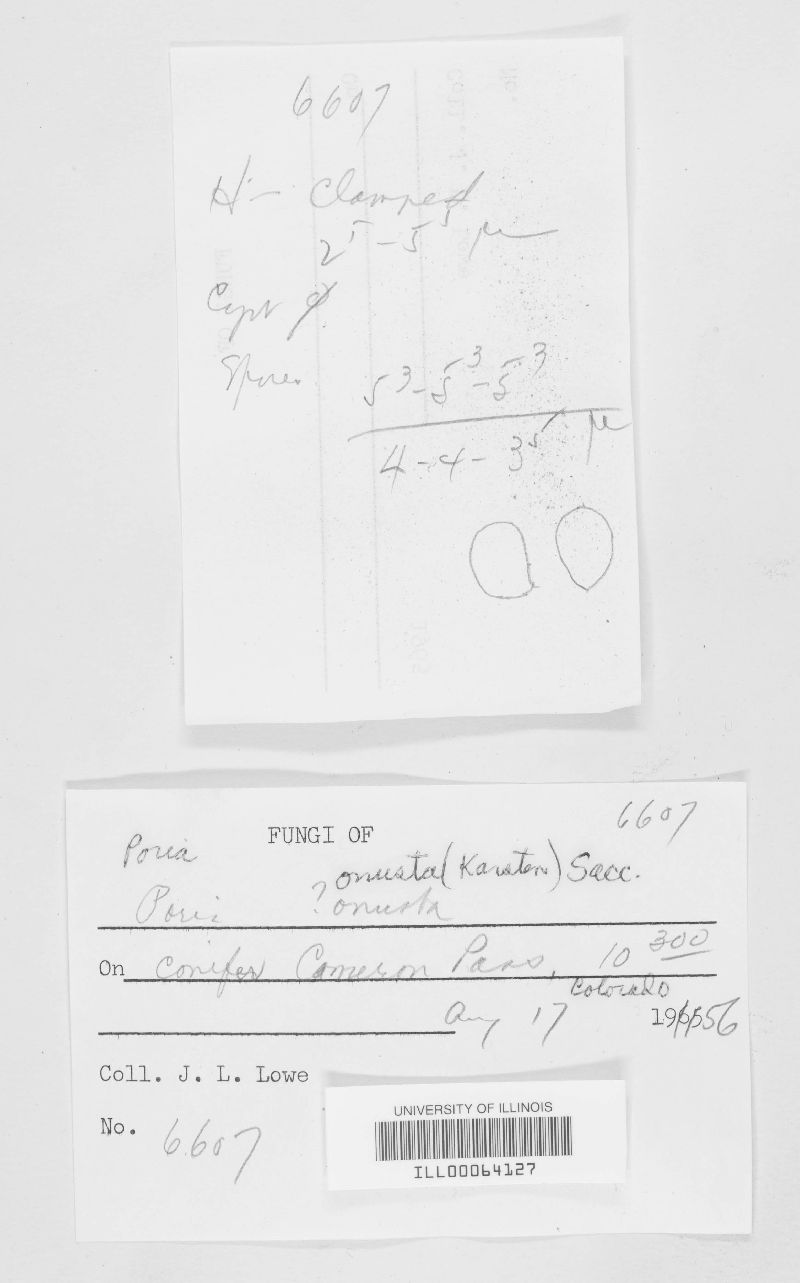 6607
H - Clamped
2⁵ - 5⁵ µ
Cyst ∅
Spores 5³ - 5³ - 5³
4 - 4 - 3⁵ µ
6607
FUNGI OF
Poria
onusta (Karsten) Sacc.
Poria ? onusta
On conifer Cameron Pass, 10 300
Colorado
Aug 17 1956
Coll. J. L. Lowe
No. 6607
UNIVERSITY OF ILLINOIS
ILL00064127